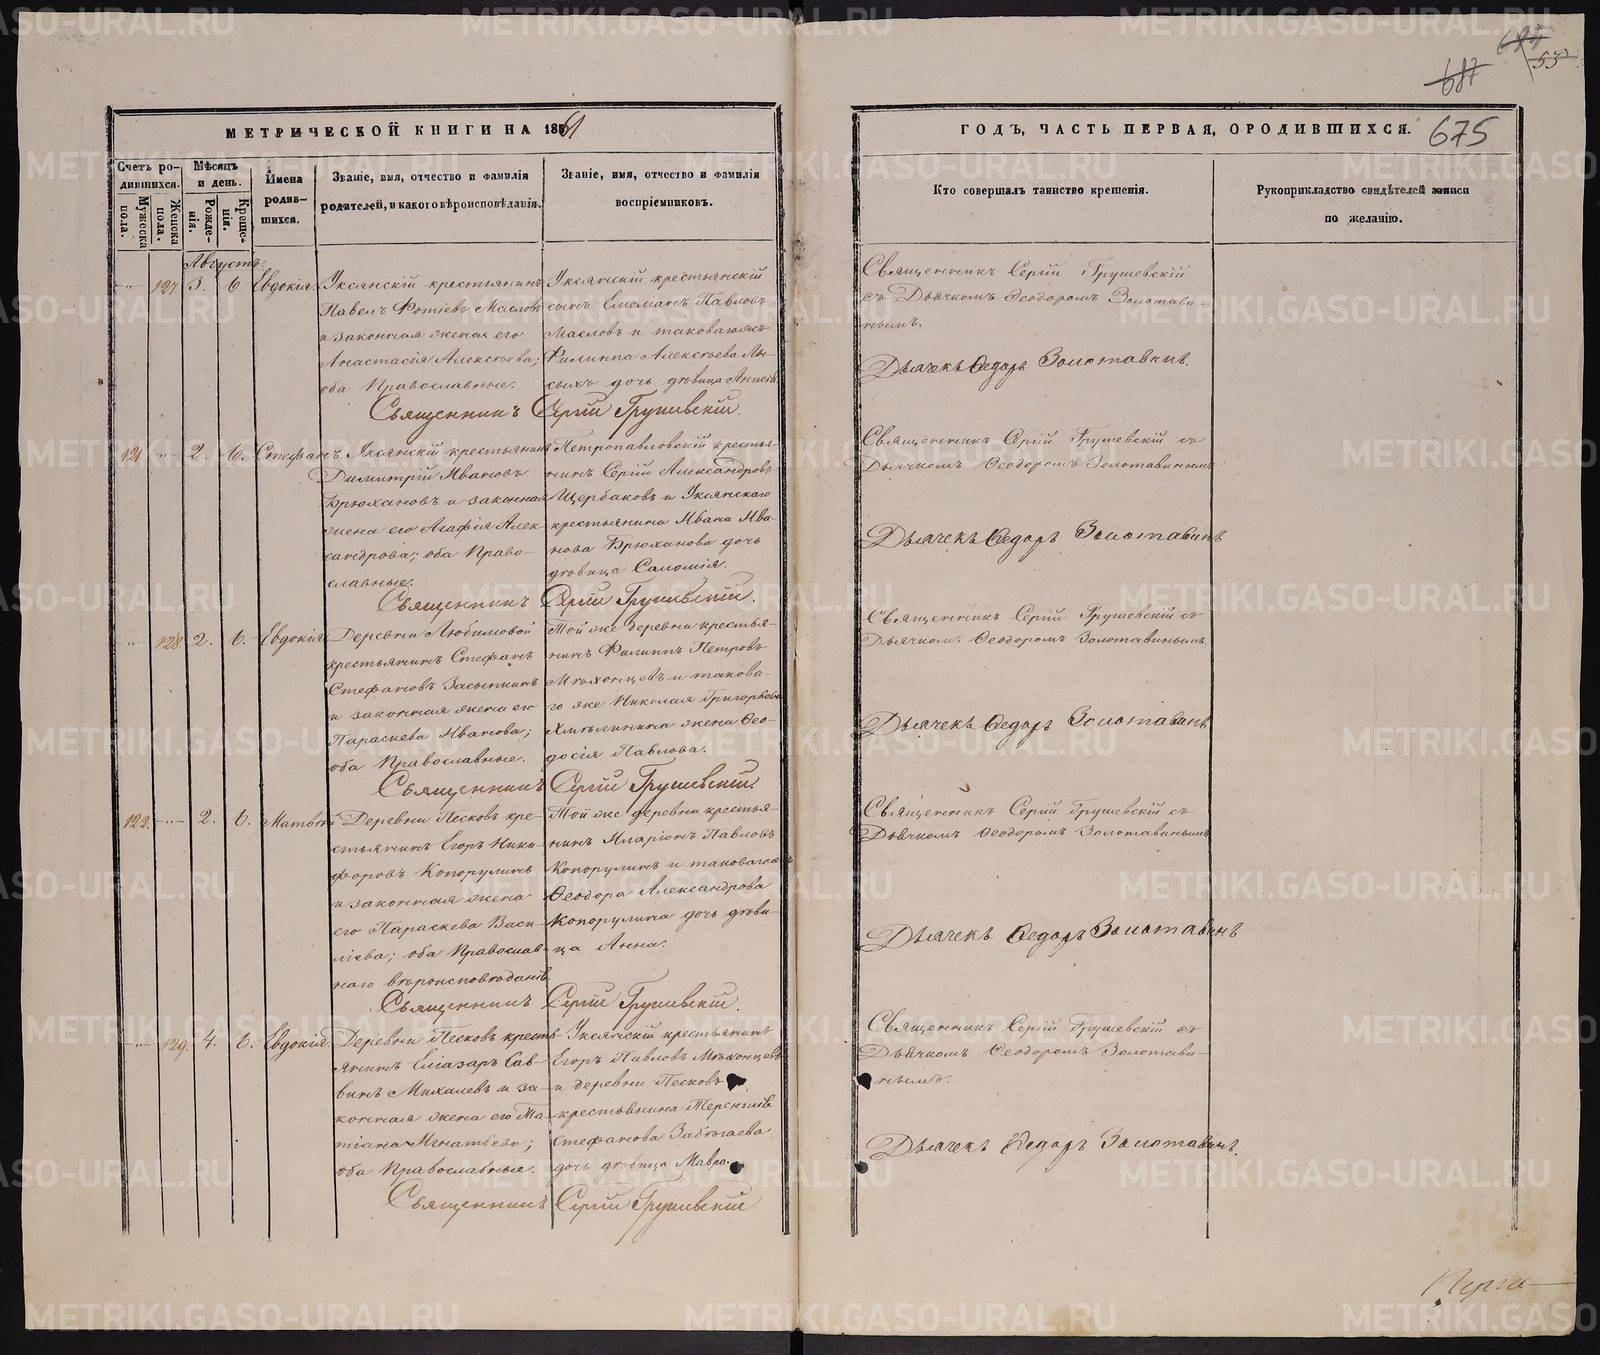 687
53
МЕТРИЧЕСКОЙ КНИГИ НА 1861
ГОДЪ, ЧАСТЬ ПЕРВАЯ, О РОДИВШИХСЯ.
675
Счетъ ро-
дившихся.
Мужеска
пола.
Женска
пола.
Мѣсяцъ
и день.
Рожде-
нія.
Креще-
нія.
Имена
родив-
шихся.
Званіе, имя, отчество и фамилія
родителей, и какого вѣроисповѣданія.
Званіе, имя, отчество и фамилія
воспріемниковъ.
Кто совершалъ таинство крещенія.
Рукоприкладство свидѣтелей записи
по желанію.
Августъ
127. 3. 6. Евдокія
Уксянскій крестьянинъ
Павелъ Фотіевъ Масловъ
и законная жена его
Анастасія Алексѣева;
оба Православные.
Уксянскій крестьянскій
сынъ Емеліанъ Павловъ
Масловъ и таковагожъ
Филиппа Алексѣева Лы-
сыхъ дочь дѣвица
Священникъ Сергій Грушевскій
съ Дьячкомъ Феодоромъ Золотави-
нымъ.
Дьячекъ Федоръ Золотавинъ.
Священникъ Сергій Грушевскій.
121 2. 6. Стефанъ
Уксянскій крестьянинъ
Димитрій Ивановъ
Брюхановъ и законная
жена его Агафія Алек-
сандрова; оба Право-
славные.
Петропавловскій крестья-
нинъ Сергій Александровъ
Щербаковъ и Уксянскаго
крестьянина Ивана Ива-
нова Брюханова дочь
дѣвица Саломія.
Священникъ Сергій Грушевскій съ
Дьячкомъ Феодоромъ Золотавинымъ
Дьячекъ Федоръ Золотавинъ
Священникъ Сергій Грушевскій.
128. 2. 6. Евдокія
Деревни Любимовой
крестьянинъ Стефанъ
Стефановъ Засыпкинъ
и законная жена его
Параскева Иванова;
оба Православные.
Той же деревни крестья-
нинъ Филиппъ Петровъ
Мѣхонцевъ и такова-
го же Николая Григорьева
Хмѣлинина жена Фео-
досія Павлова.
Священникъ Сергій Грушевскій съ
Дьячкомъ Феодоромъ Золотавинымъ.
Дьячекъ Федоръ Золотавинъ
Священникъ Сергій Грушевскій.
122. 2. 6. Матвѣй
Деревни Песковъ кре-
стьянинъ Егоръ Ники-
форовъ Копорулинъ
и законная жена
его Параскева Васи-
ліева; оба Православ-
наго вѣроисповѣданія.
Той же деревни крестья-
нинъ Иларіонъ Павловъ
Копорулинъ и таковагожъ
Феодора Александрова
Копорулина дочь дѣви-
ца Анна.
Священникъ Сергій Грушевскій съ
Дьячкомъ Феодоромъ Золотавинымъ
Дьячекъ Федоръ Золотавинъ
Священникъ Сергій Грушевскій.
129. 4. 6. Евдокія
Деревни Песковъ кресть-
янинъ Еліазаръ Сав-
винъ Михалевъ и за-
конная жена его Та-
тіана Игнатьева;
оба Православные.
Уксянскій крестьянинъ
Егоръ Павловъ Мѣхонцевъ
и деревни Песковъ
крестьянина Терентія
Стефанова Забѣгаева
дочь дѣвица Мавра.
Священникъ Сергій Грушевскій съ
Дьячкомъ Феодоромъ Золотави-
нымъ.
Дьячекъ Федоръ Золотавинъ.
Священникъ Сергій Грушевскій.
METRIKI.GASO-URAL.RU